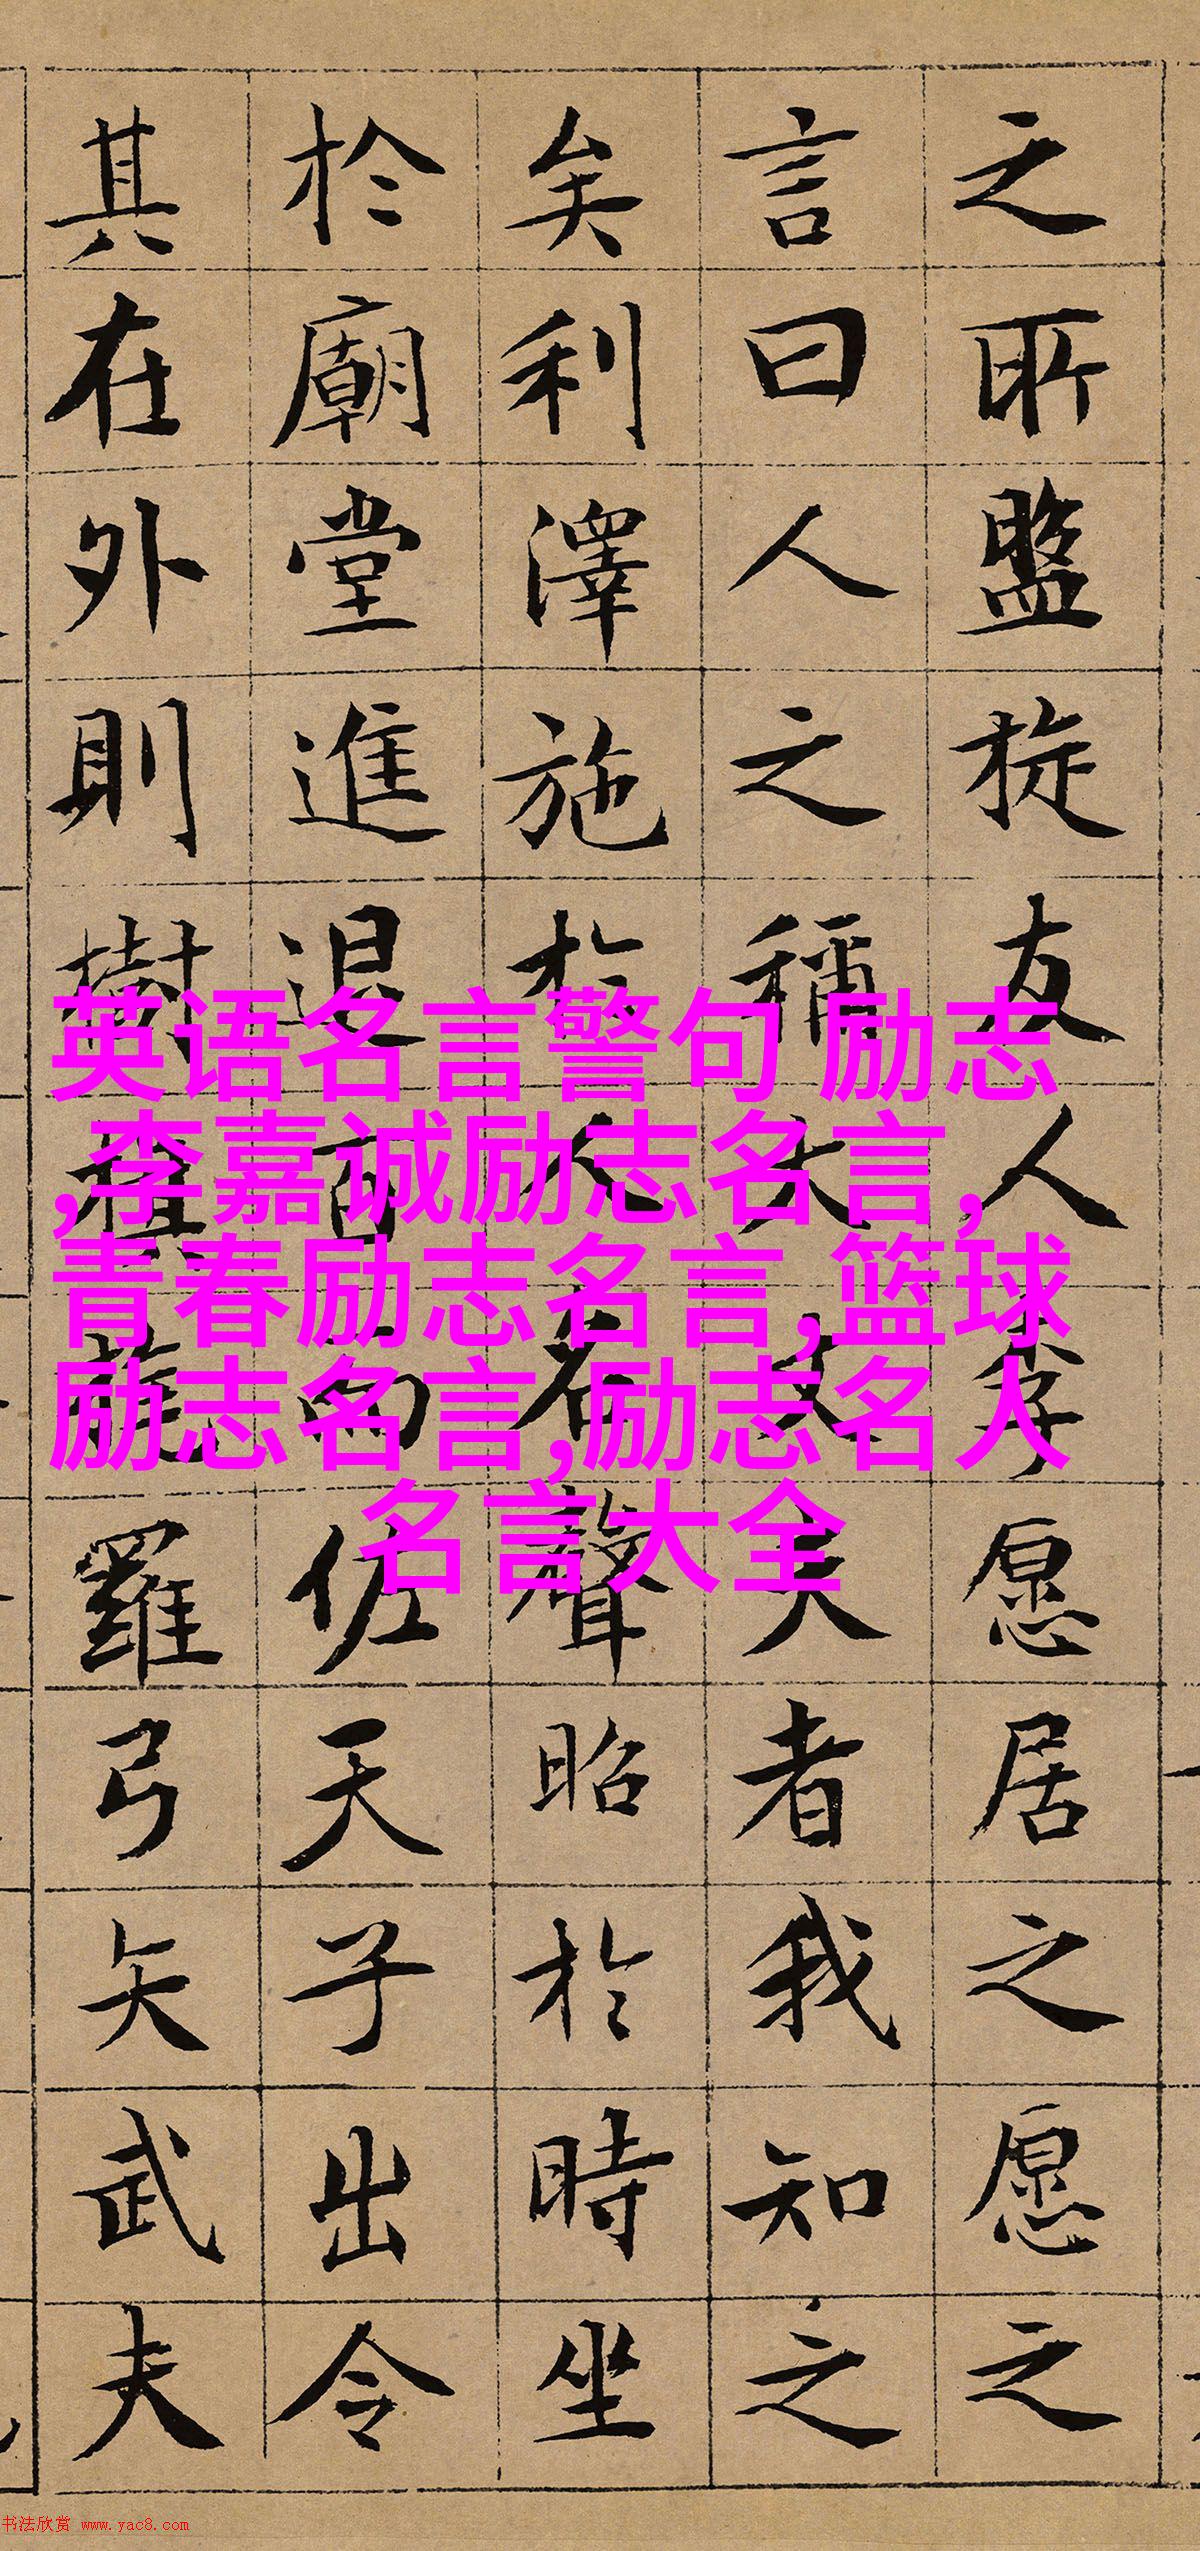 之所盤旋友人李愿居之愿之
言曰人之稱大丈夫者我知之
矣利澤施於人名聲昭於時坐
於廟堂進退百而佐天子出令
其在外則樹旗旄羅弓矢武夫
英语名言警句 励志
,李嘉诚励志名言,
青春励志名言,篮球
励志名言,励志名人
名言大全
书法欣赏 www.yac8.com